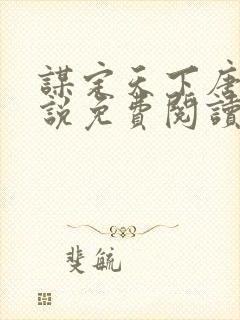 謀定天下唐
說免費閱讀
斐毓